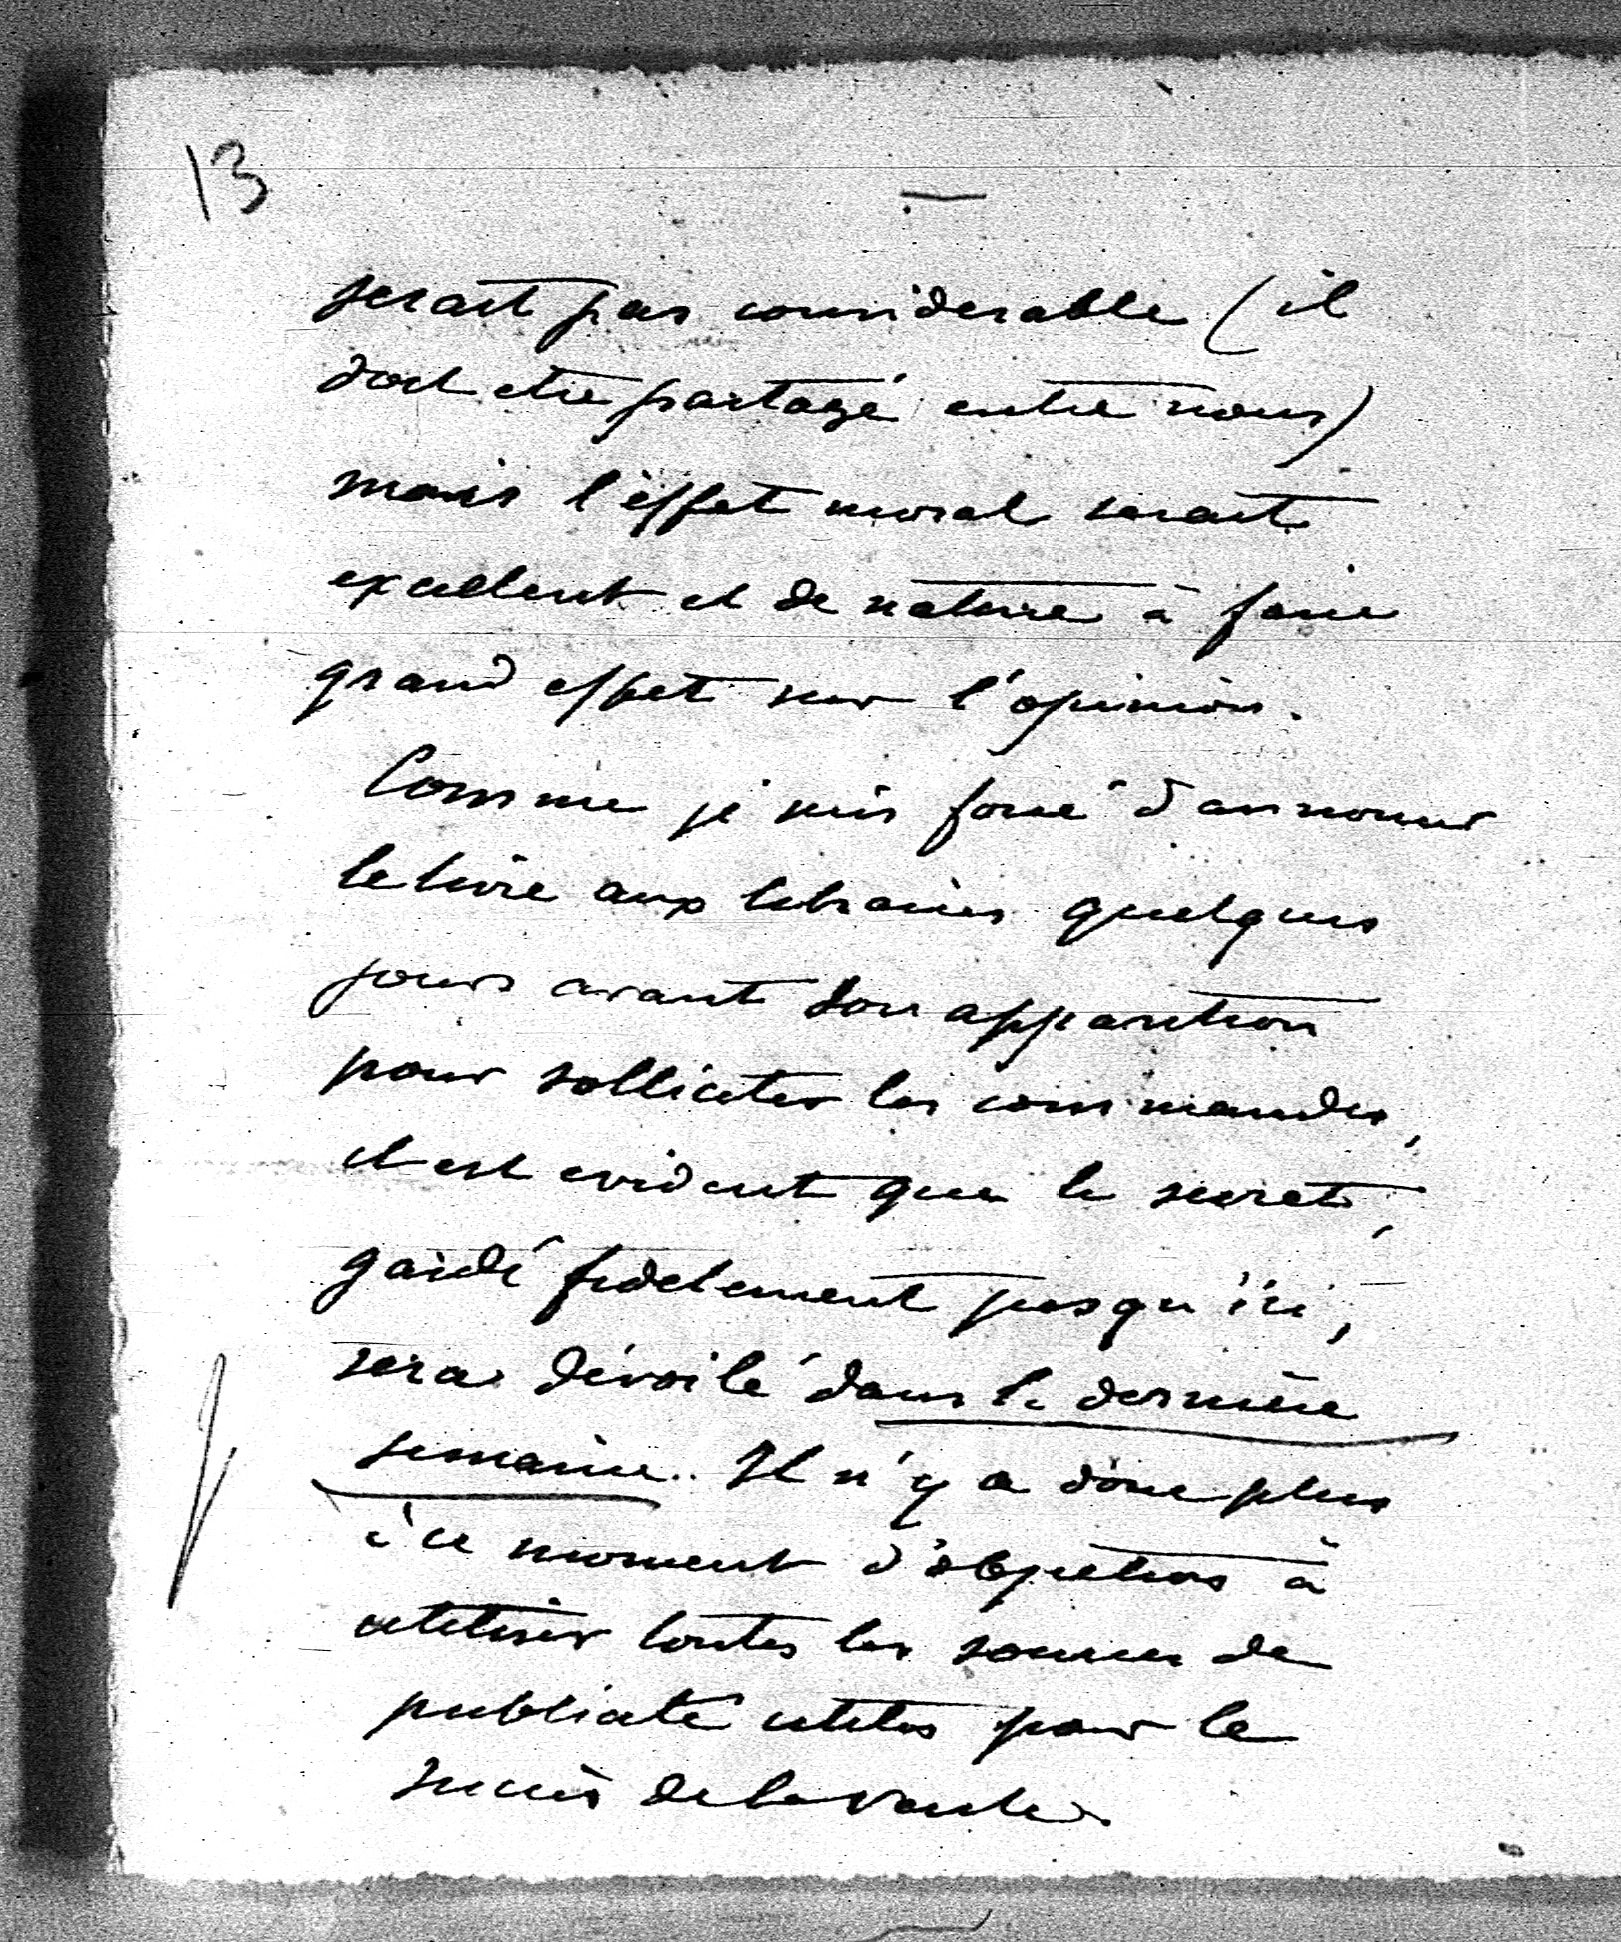 13
serait pas considerable (il
doit etre partagé entre nous)
mais l'effet moral serait
excellent et de nature à faire
grand effet sur l'opinion.
Comme je suis forcé d'annoncer
le livre aux libraires quelques
jours avant son apparition
pour solliciter les commandes,
il est evident que le secret,
gardé fidelement jusqu'ici,
sera dévoilé dans la dernière
semaine. Il n'y a donc plus
à ce moment d'objections à
utiliser toutes les sources de
publicité utiles pour le
succès de la vente.